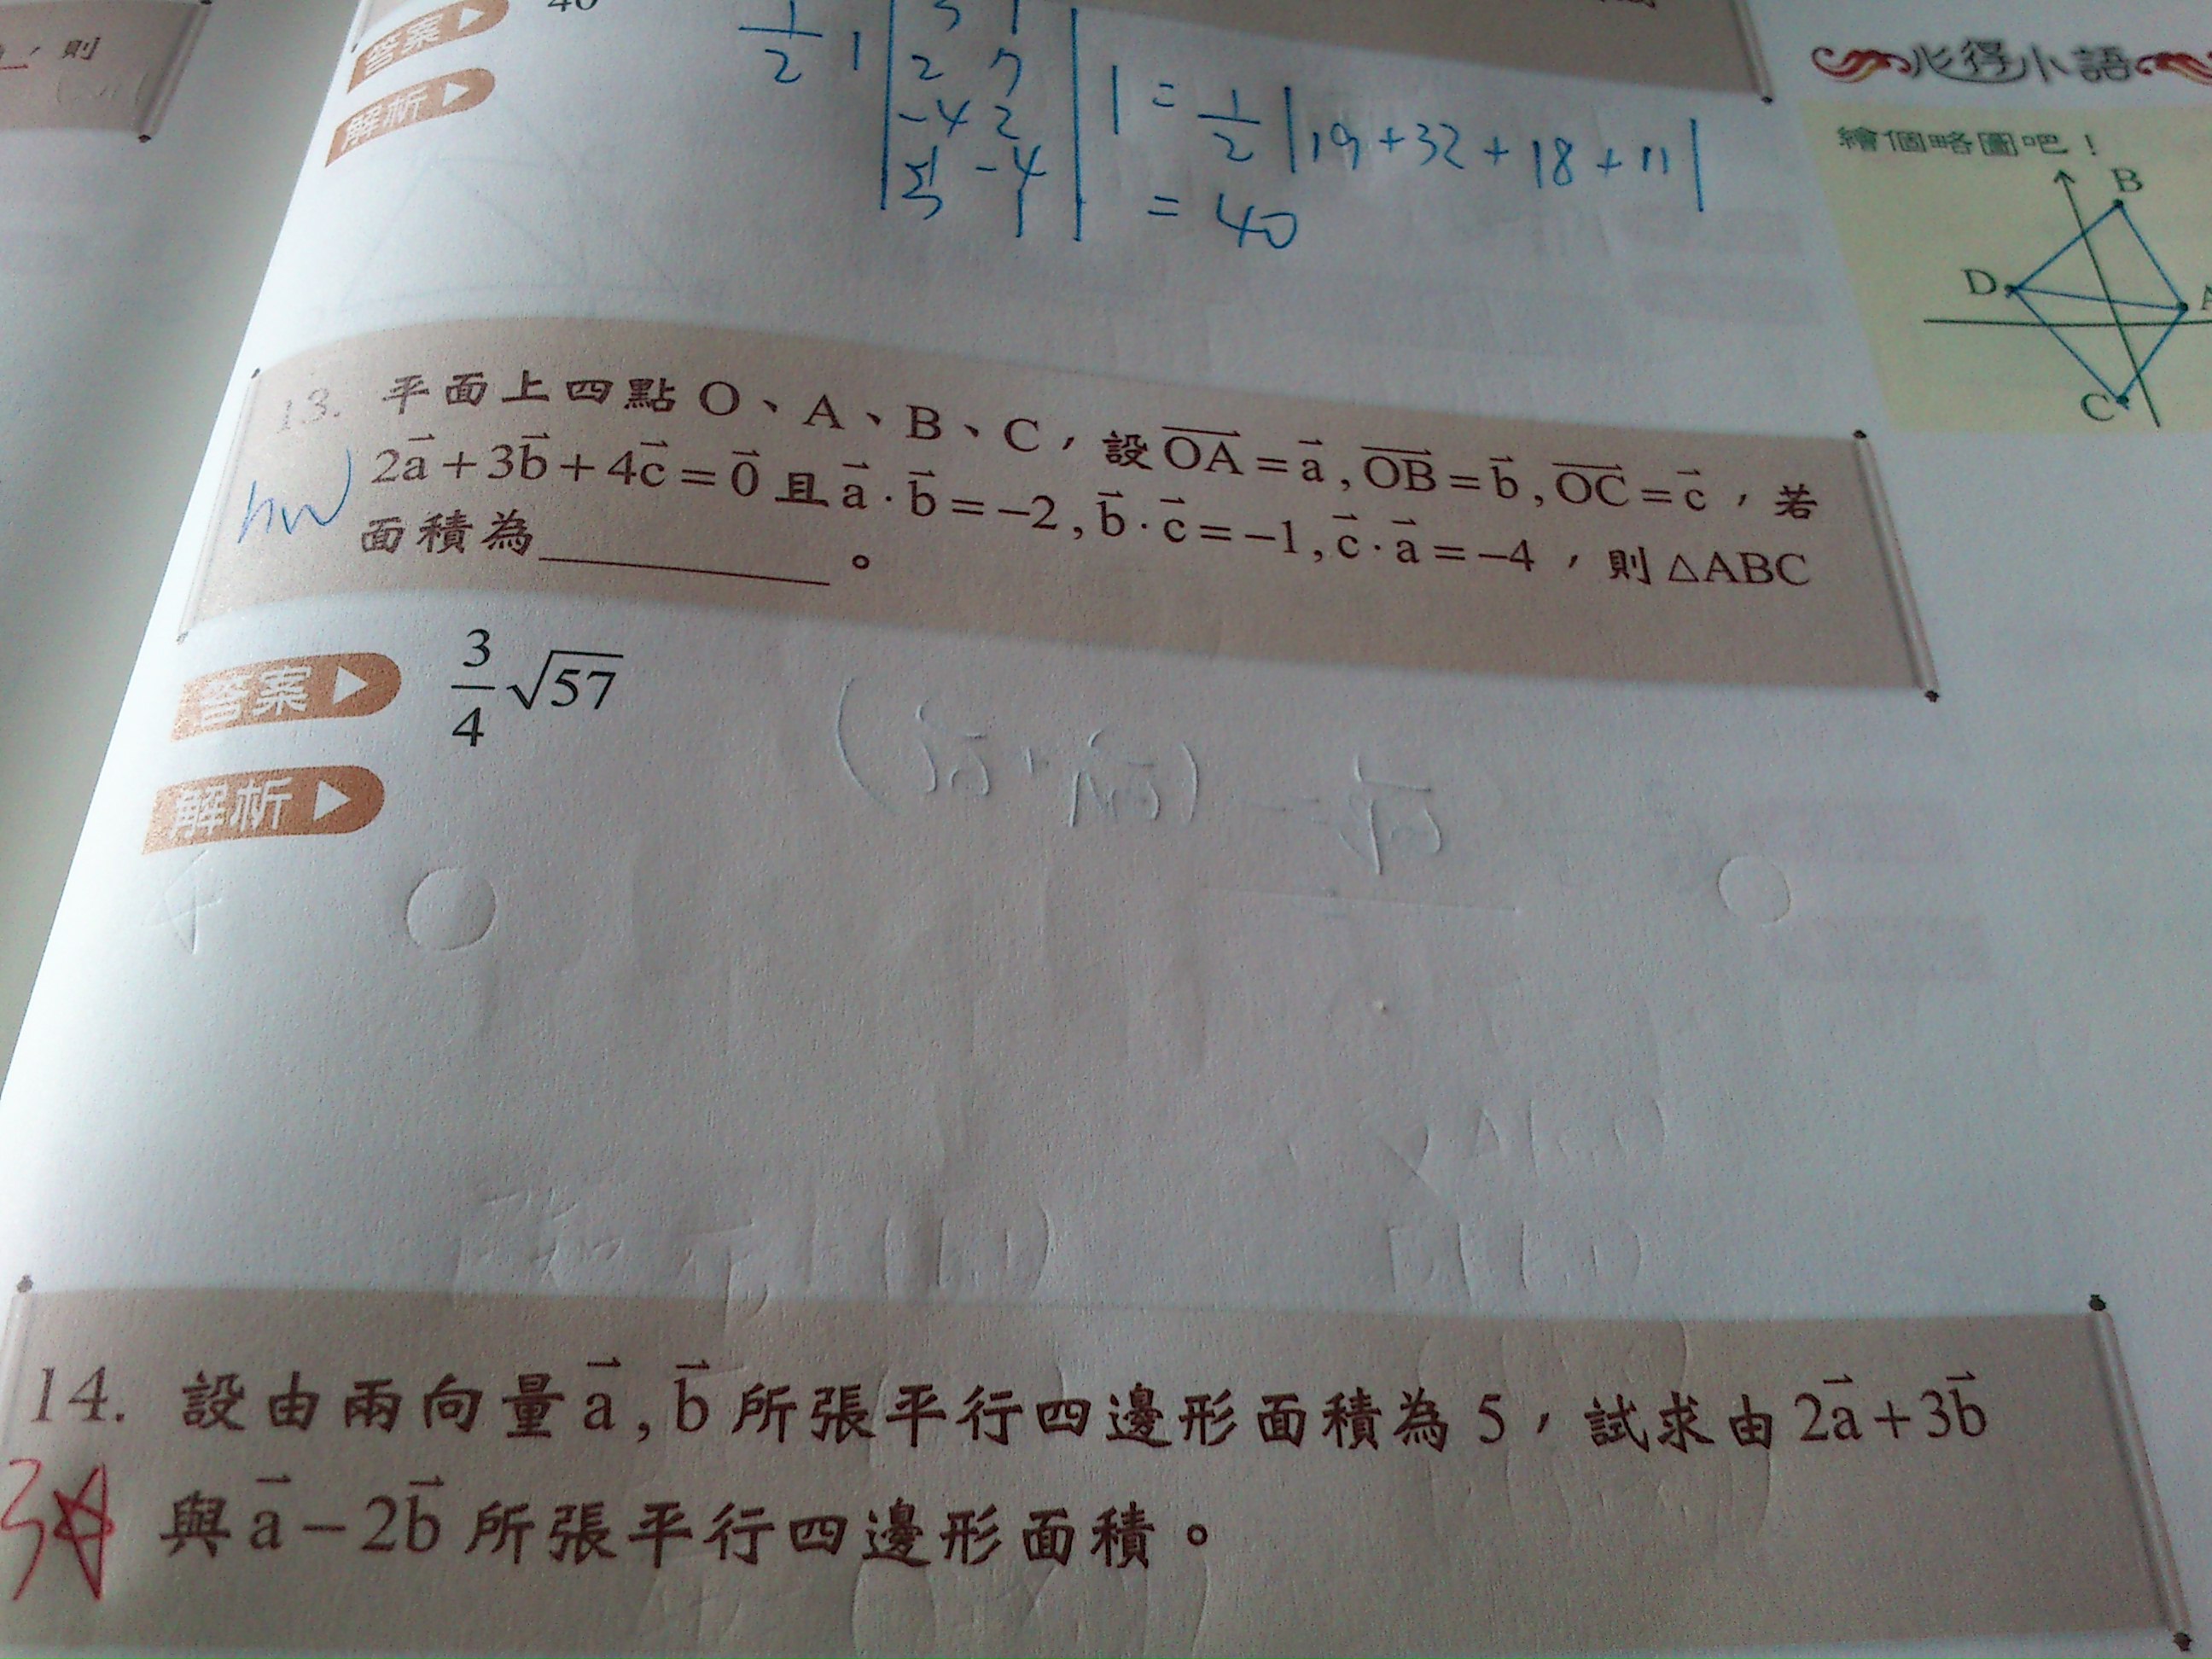 則
答案
40
解析
1/2 | 2 7
-4 2
5 -4 | = 1/2 |19+32+18+11|
= 40
心得小語
繪個略圖吧！
B
D
A
C
13. 平面上四點 O、A、B、C，設 \overrightarrow{OA} = \vec{a} , \overrightarrow{OB} = \vec{b} , \overrightarrow{OC} = \vec{c} ，若
2\vec{a} + 3\vec{b} + 4\vec{c} = \vec{0} 且 \vec{a} · \vec{b} = −2 , \vec{b} · \vec{c} = −1 , \vec{c} · \vec{a} = −4 ，則 △ABC
hw
面積為________。
答案
3/4 √57
解析
14. 設由兩向量 \vec{a} , \vec{b} 所張平行四邊形面積為 5，試求由 2\vec{a} + 3\vec{b}
3☆
與 \vec{a} − 2\vec{b} 所張平行四邊形面積。